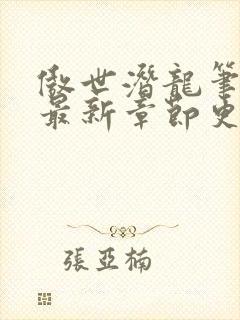 傲世潛龍筆
最新章節史
張亞楠